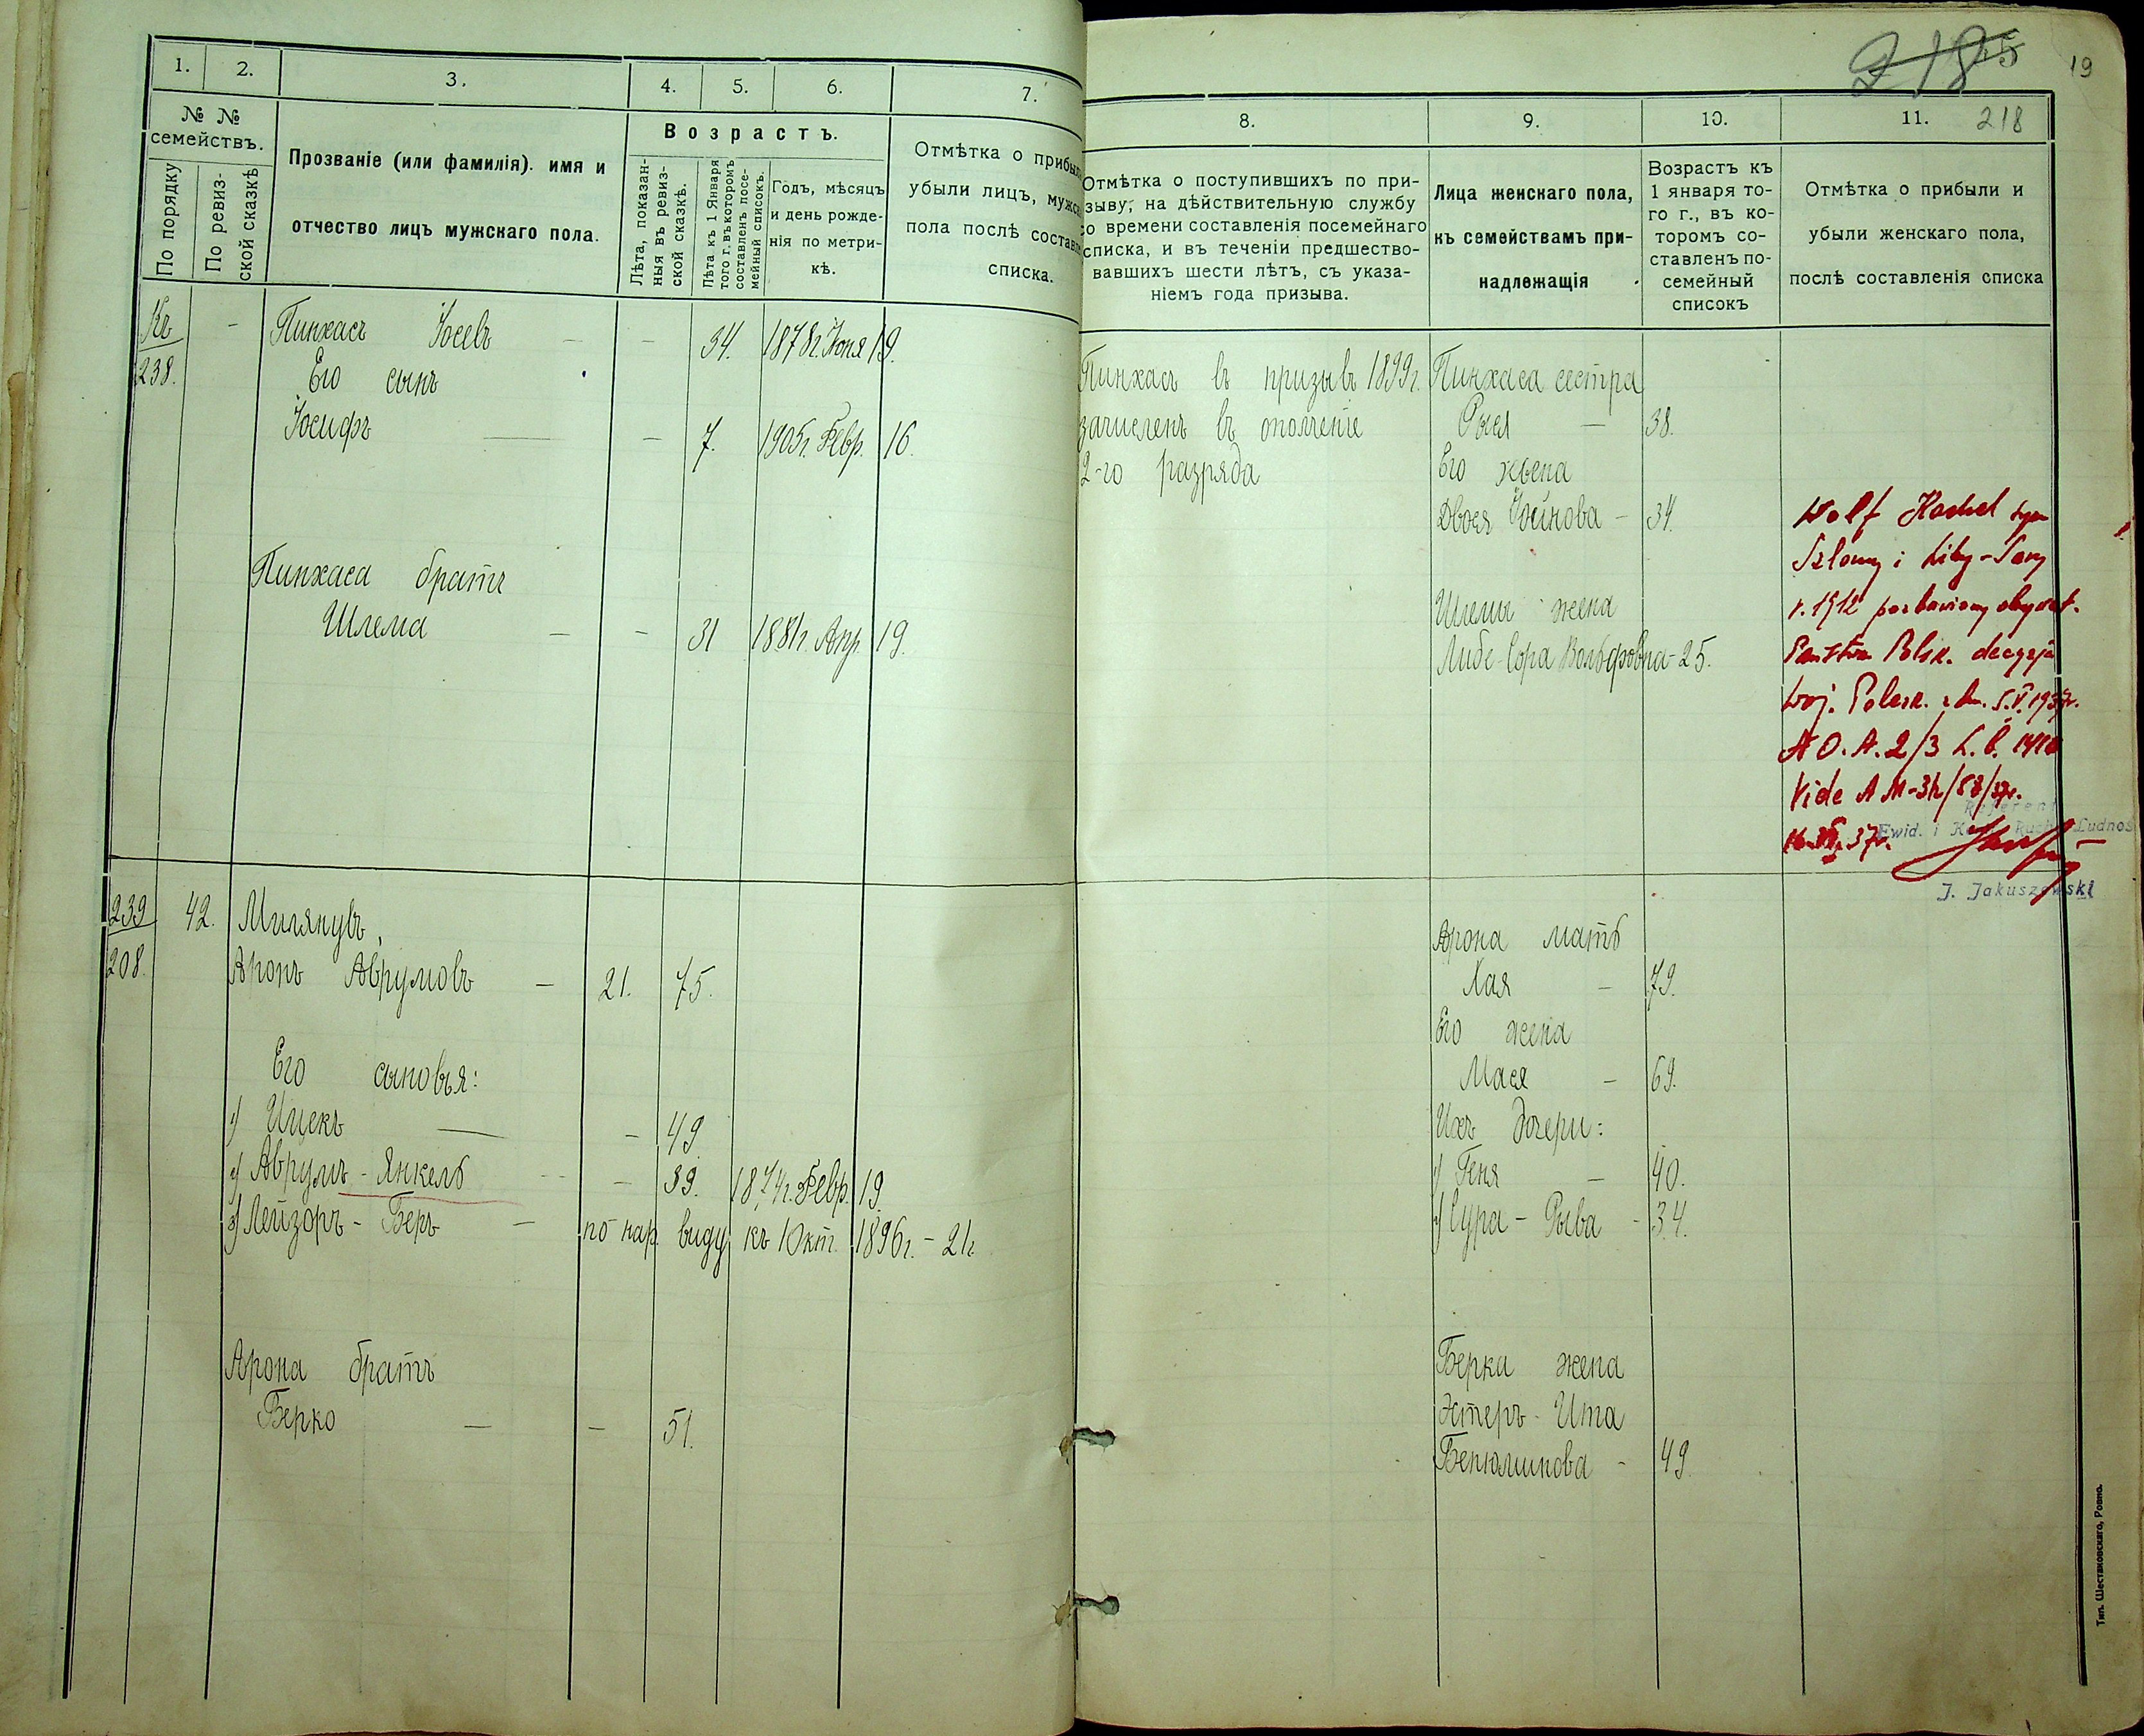 1. 2. 3. 4. 5. 6. 7.
№ № семействъ.
По порядку
По ревизской сказкѣ
Прозваніе (или фамилія). имя и
отчество лицъ мужскаго пола.
Возрастъ.
Лѣта, показан-
ныя въ ревиз-
ской сказкѣ.
Лѣта къ 1 Января
того г. въ которомъ
составленъ посе-
мейный списокъ.
Годъ, мѣсяцъ
и день рожде-
нія по метри-
кѣ.
Отмѣтка о прибыли
убыли лицъ, мужск
пола послѣ составл
списка.
Къ 238. - Пинхасъ Іосевъ - - 34. 1878г. Іюня 19.
Его сынъ
Іосифъ - - 7. 1905г. Февр. 16.
Пинхаса братъ
Шлема - - 31 1881г. Апр. 19.
239 42. Милянувъ
208. Аронъ Аврумовъ - 21. 75.
Его сыновья:
1) Ицекъ - - 49.
2) Аврумъ-Янкель - - 39. 1874г. Февр. 19.
3) Лейзоръ-Беръ - по нар. виду къ 1 Окт. 1896г. - 21г.
Арона братъ
Берко - - 51.
218 19
8. 9. 10. 11. 218
Отмѣтка о поступившихъ по при-
зыву, на дѣйствительную службу
со времени составленія посемейнаго
списка, и въ теченіи предшество-
вавшихъ шести лѣтъ, съ указа-
ніемъ года призыва.
Лица женскаго пола,
къ семействамъ при-
надлежащія
Возрастъ къ
1 января то-
го г., въ ко-
торомъ со-
ставленъ по-
семейный
списокъ
Отмѣтка о прибыли и
убыли женскаго пола,
послѣ составленія списка
Пинхасъ въ призывъ 1899г.
зачисленъ въ ополченіе
2-го разряда
Пинхаса сестра
Рыся - 38.
Его жена
Двося - 34.
Шлемы жена
Либе-Сора Вольфовна - 25.
Wolf syn
Szlomy i Liby-Sary
r. 1912 pozbawiony obywat.
Państwa Polsk. decyzją
Woj. Polesk. z dn. 5.V.1937r.
N O.A. 2/3
Vide A M-3h/58/37r.
37r.
Referent
Ewid. i Ruchu Ludnoś
J. Jakuszewski
Арона мать
Хая - 79.
Его жена
Мася - 69.
Ихъ дочери:
1) Геня - 40.
2) Сура-Рыва - 34.
Берка жена
Эстеръ-Ита
Бенюминова - 49
Тип. Шестаковскаго, Ровно.